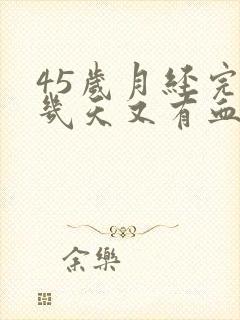 45歲月經完
幾天又有血
余樂